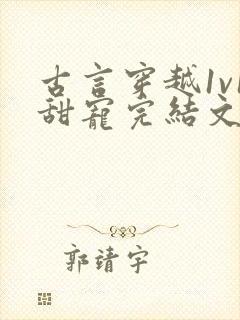 古言穿越1v1
甜宠完结文
郭靖宇